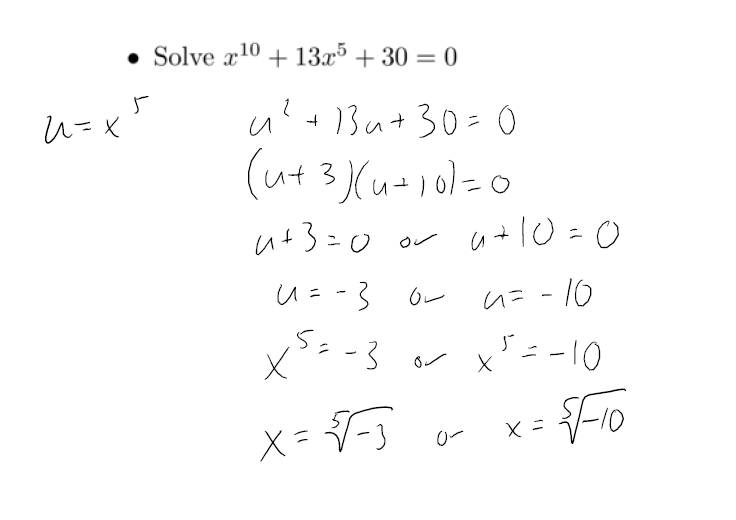 • Solve x¹⁰ + 13x⁵ + 30 = 0
u = x⁵ u² + 13u + 30 = 0
(u + 3)(u + 10) = 0
u + 3 = 0 or u + 10 = 0
u = -3 or u = -10
x⁵ = -3 or x⁵ = -10
x = ⁵√-3 or x = ⁵√-10